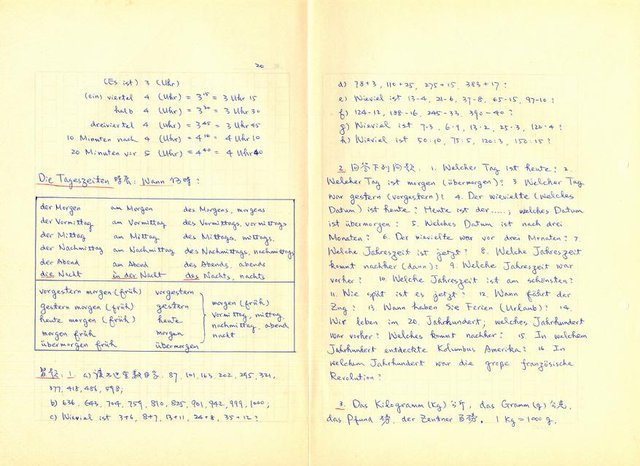 20
(Es ist) 3 (Uhr)
(ein) viertel 4 (Uhr) = 3¹⁵ = 3 Uhr 15
halb 4 (Uhr) = 3³⁰ = 3 Uhr 30
dreiviertel 4 (Uhr) = 3⁴⁵ = 3 Uhr 45
10 Minuten nach 4 (Uhr) = 4¹⁰ = 4 Uhr 10
20 Minuten vor 5 (Uhr) = 4⁴⁰ = 4 Uhr 40
Die Tageszeiten 時辰: Wann 何時:
der Morgen am Morgen des Morgens, morgens
der Vormittag am Vormittag des Vormittags, vormittags
der Mittag am Mittag des Mittags, mittags,
der Nachmittag am Nachmittag des Nachmittags, nachmittags
der Abend am Abend des Abends, abends
die Nacht in der Nacht des Nachts, nachts
vorgestern morgen (früh) vorgestern
gestern morgen (früh) gestern
heute morgen (früh) heute
morgen früh morgen
übermorgen früh übermorgen
morgen (früh)
vormittag, mittag,
nachmittag, abend
nacht
1. a) 87, 101, 163, 202, 245, 321,
377, 418, 486, 598;
b) 636, 643, 704, 759, 810, 825, 901, 942, 999, 1000;
c) Wieviel ist 3+6, 8+7, 13+11, 24+8, 35+12?
d) 78+3, 110+25, 275+15, 383+17?
e) Wieviel ist 13-4, 21-6, 37-8, 65-15, 97-10?
f) 124-12, 188-16, 245-33, 390-40?
g) Wieviel ist 7·3, 6·9, 13·2, 25·3, 122·4?
h) Wieviel ist 50:10, 75:5, 120:3, 150:15?
2. 回答下列问题. 1. Welcher Tag ist heute? 2.
Welcher Tag ist morgen (übermorgen)? 3. Welcher Tag
war gestern (vorgestern)? 4. Der wievielte (Welches
Datum) ist heute? Heute ist der.....; welches Datum
ist übermorgen? 5. Welches Datum ist nach drei
Monaten? 6. Der wievielte war vor drei Monaten? 7.
Welche Jahreszeit ist jetzt? 8. Welche Jahreszeit
kommt nachher (dann)? 9. Welche Jahreszeit war
vorher? 10. Welche Jahreszeit ist am schönsten?
11. Wie spät ist es jetzt? 12. Wann fährt der
Zug? 13. Wann haben Sie Ferien (Urlaub)? 14.
Wir leben im 20. Jahrhundert, welches Jahrhundert
war vorher? Welches kommt nachher? 15. In welchem
Jahrhundert entdeckte Kolumbus Amerika? 16. In
welchem Jahrhundert war die große französische
Revolution?
3. Das Kilogramm (Kg) 公斤, das Gramm (g) 公克,
das Pfund 磅, der Zentner 1 Kg = 1000 g,